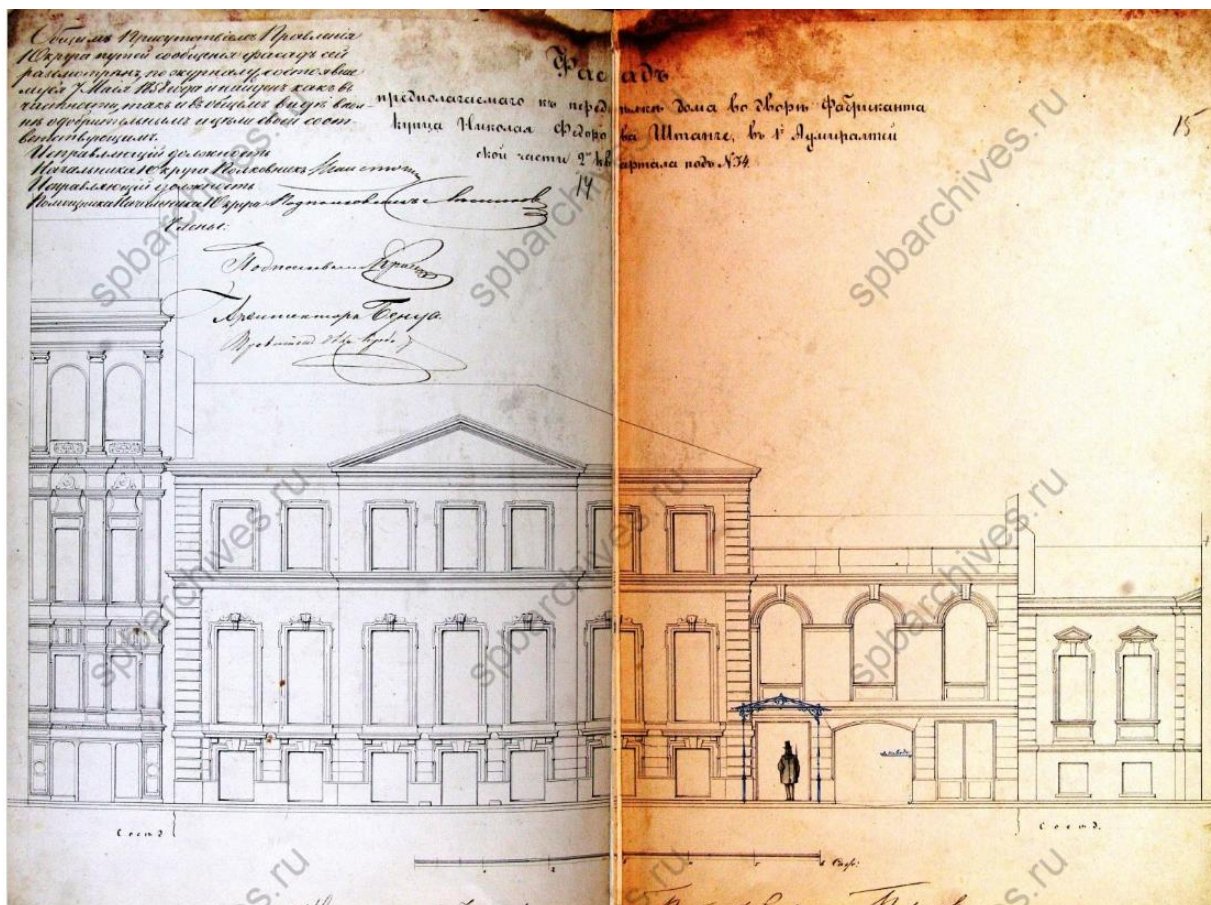 Общимъ Присутствіемъ Правленія
Xокруга путей сообщенія фасадъ сей
разсмотрѣнъ, по журналу, состоявше
муся 7 Мая 1858 года и найденъ какъ въ
частности, такъ и въ общемъ видѣ впол-
нѣ одобрительнымъ и цѣли своей соот-
вѣтствующимъ.
Исправляющій должность
Начальника 10 округа Полковникъ
Исправляющій должность
Помощника Начальника 10 округа Подполковникъ
Члены:
Подполковникъ
Архитекторъ Бенуа.
Фасадъ
предполагаемаго къ передѣлкѣ дома во дворѣ Фабриканта
купца Николая Федорова Штанге, въ 1й Адмиралтей
ской части 2го квартала подъ №34.
14
15
Сосѣд.
Сосѣд.
8 Саж:
spbarchives.ru
spbarchives.ru
spbarchives.ru
spbarchives.ru
spbarchives.ru
spbarchives.ru
spbarchives.ru
spbarchives.ru
spbarchives.ru
spbarchives.ru